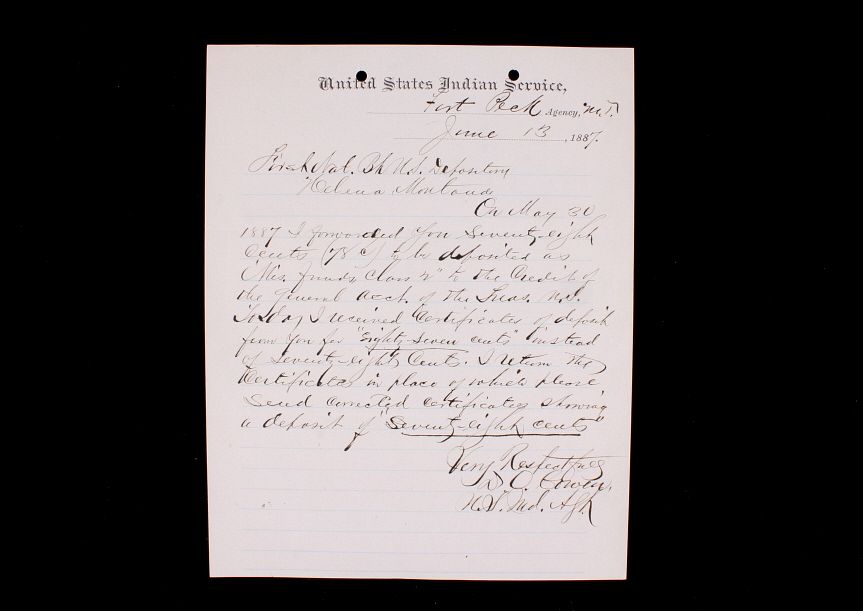 United States Indian Service,
Fort Peck Agency, M.T.
June 13, 1887.
First Nat. Bk U.S. Depository
Helena Montana
On May 30
1887 I forwarded you Seventy-eight
Cents (78 c) to be deposited as
"Mis. funds, Class 2" to the Credit of
the General Acct. of the Treas. U.S.
Today I received Certificates of deposit
from you for "Eighty-Seven cents" instead
of Seventy-eight Cents. I return the
Certificates in place of which please
Send corrected certificates showing
a deposit of "Seventy-eight cents"
Very Respectfully
D. O. Cowen,
U.S. Ind. Agt.